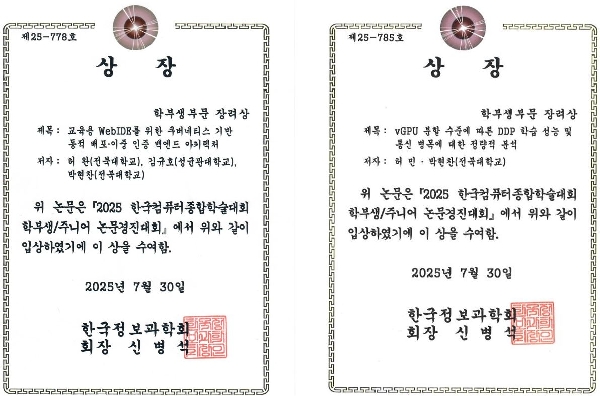 제25-778호
상 장
학부생부문 장려상
제목 : 교육용 WebIDE를 위한 쿠버네티스 기반
동적 배포·이중 인증 백엔드 아키텍처
저자 : 허 완(전북대학교), 김규호(성균관대학교),
박현찬(전북대학교)
위 논문은 『2025 한국컴퓨터종합학술대회
학부생/주니어 논문경진대회』에서 위와 같이
입상하였기에 이 상을 수여함.
2025년 7월 30일
한국정보과학회
회장 신병석
제25-785호
상 장
학부생부문 장려상
제목 : vGPU 분할 수준에 따른 DDP 학습 성능 및
통신 병목에 대한 정량적 분석
저자 : 허 민 · 박현찬(전북대학교)
위 논문은 『2025 한국컴퓨터종합학술대회
학부생/주니어 논문경진대회』에서 위와 같이
입상하였기에 이 상을 수여함.
2025년 7월 30일
한국정보과학회
회장 신병석